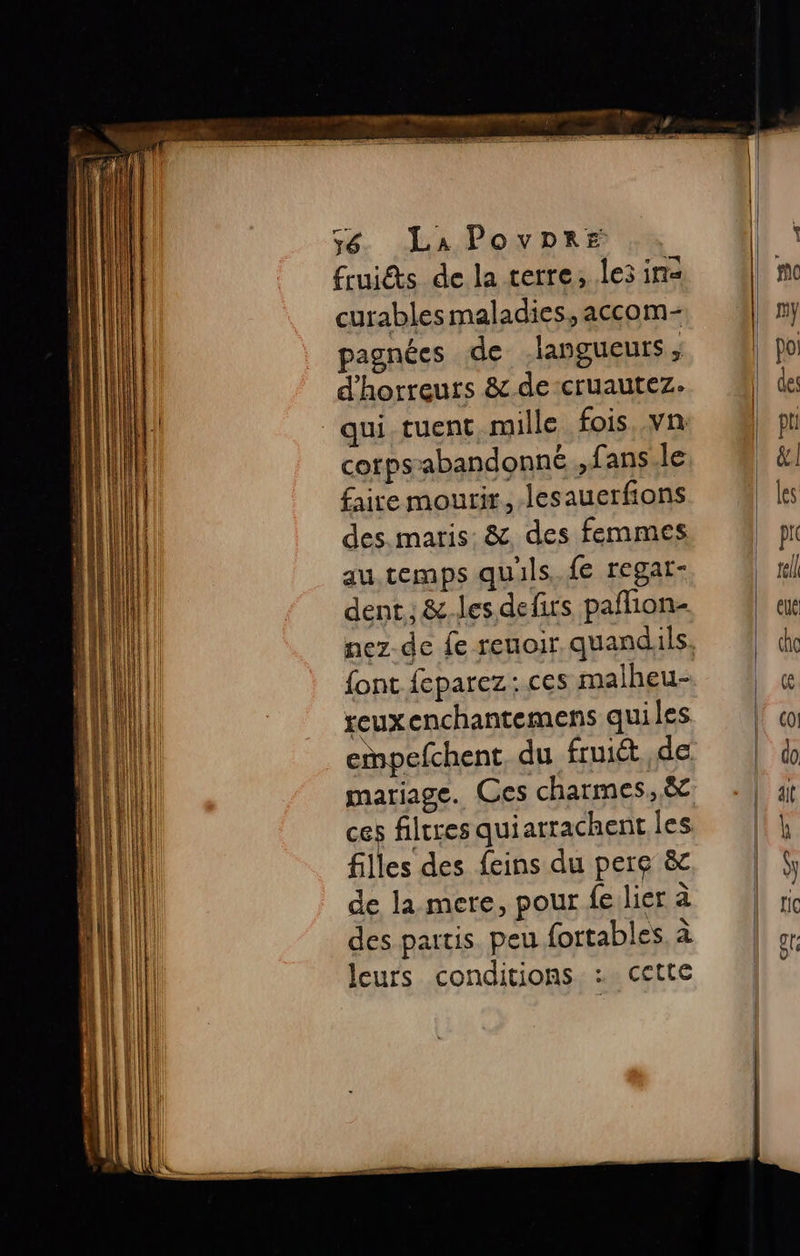 56 LA POVDRE
fruicts de la terre, les in-
curables maladies, accom-
pagnées de langueurs,
d'horreurs & de cruautez.
qui tuent mille fois vn
corps abandonné, ſans le
faire mourir, les auerſions
des maris & des femmes
au temps qu'ils ſe regar-
dent, & les deſirs paſſion-
nez de ſe reuoir quand ils
ſont ſeparez : ces malheu-
reux enchantemens qui les
empeſchent du fruict de
mariage. Ces charmes, &
ces filtres qui arrachent les
filles des ſeins du pere &
de la mere, pour ſe lier à
des partis peu ſortables à
leurs conditions : cette
mo
my
poi
des
pti
& l
les
pro
rell
eue
cho
ce
co
do
ait
h
Sy
ric
gra